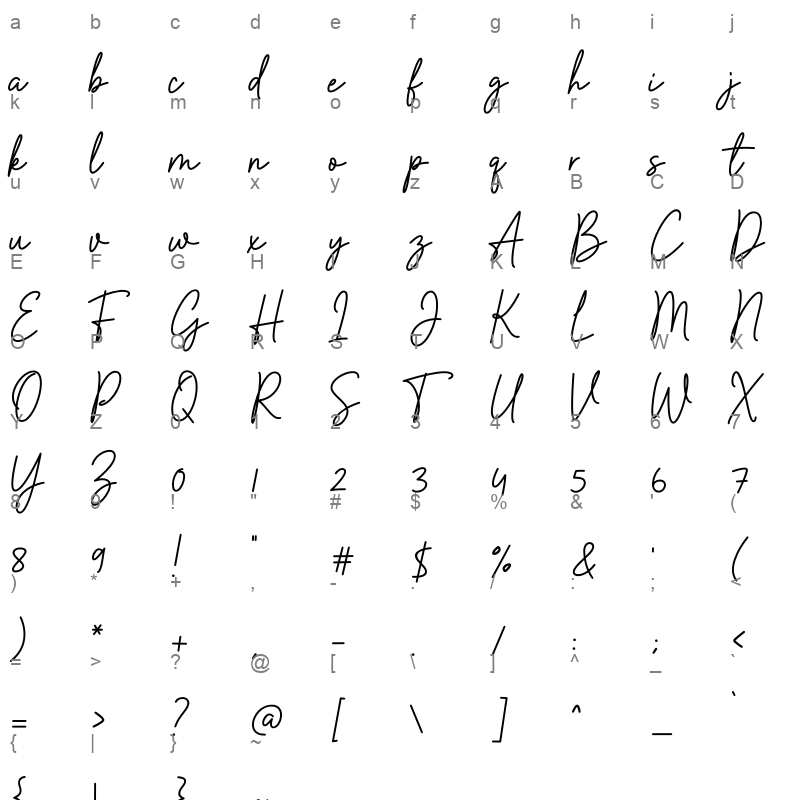 a b c d e f g h i j
a b c d e f g h i j
k l m n o p q r s t
k l m n o p q r s t
u v w x y z A B C D
u v w x y z A B C D
E F G H I J K L M N
E F G H I J K L M N
O P Q R S T U V W X
O P Q R S T U V W X
Y Z 0 1 2 3 4 5 6 7
Y Z 0 1 2 3 4 5 6 7
8 9 ! " # $ % & ' (
8 9 ! " # $ % & ' (
) * + , - . / : ; <
) * + , - . / : ; <
= > ? @ [ \ ] ^ _ `
= > ? @ [ \ ] ^ _ `
{ | } ~
{ | } ~